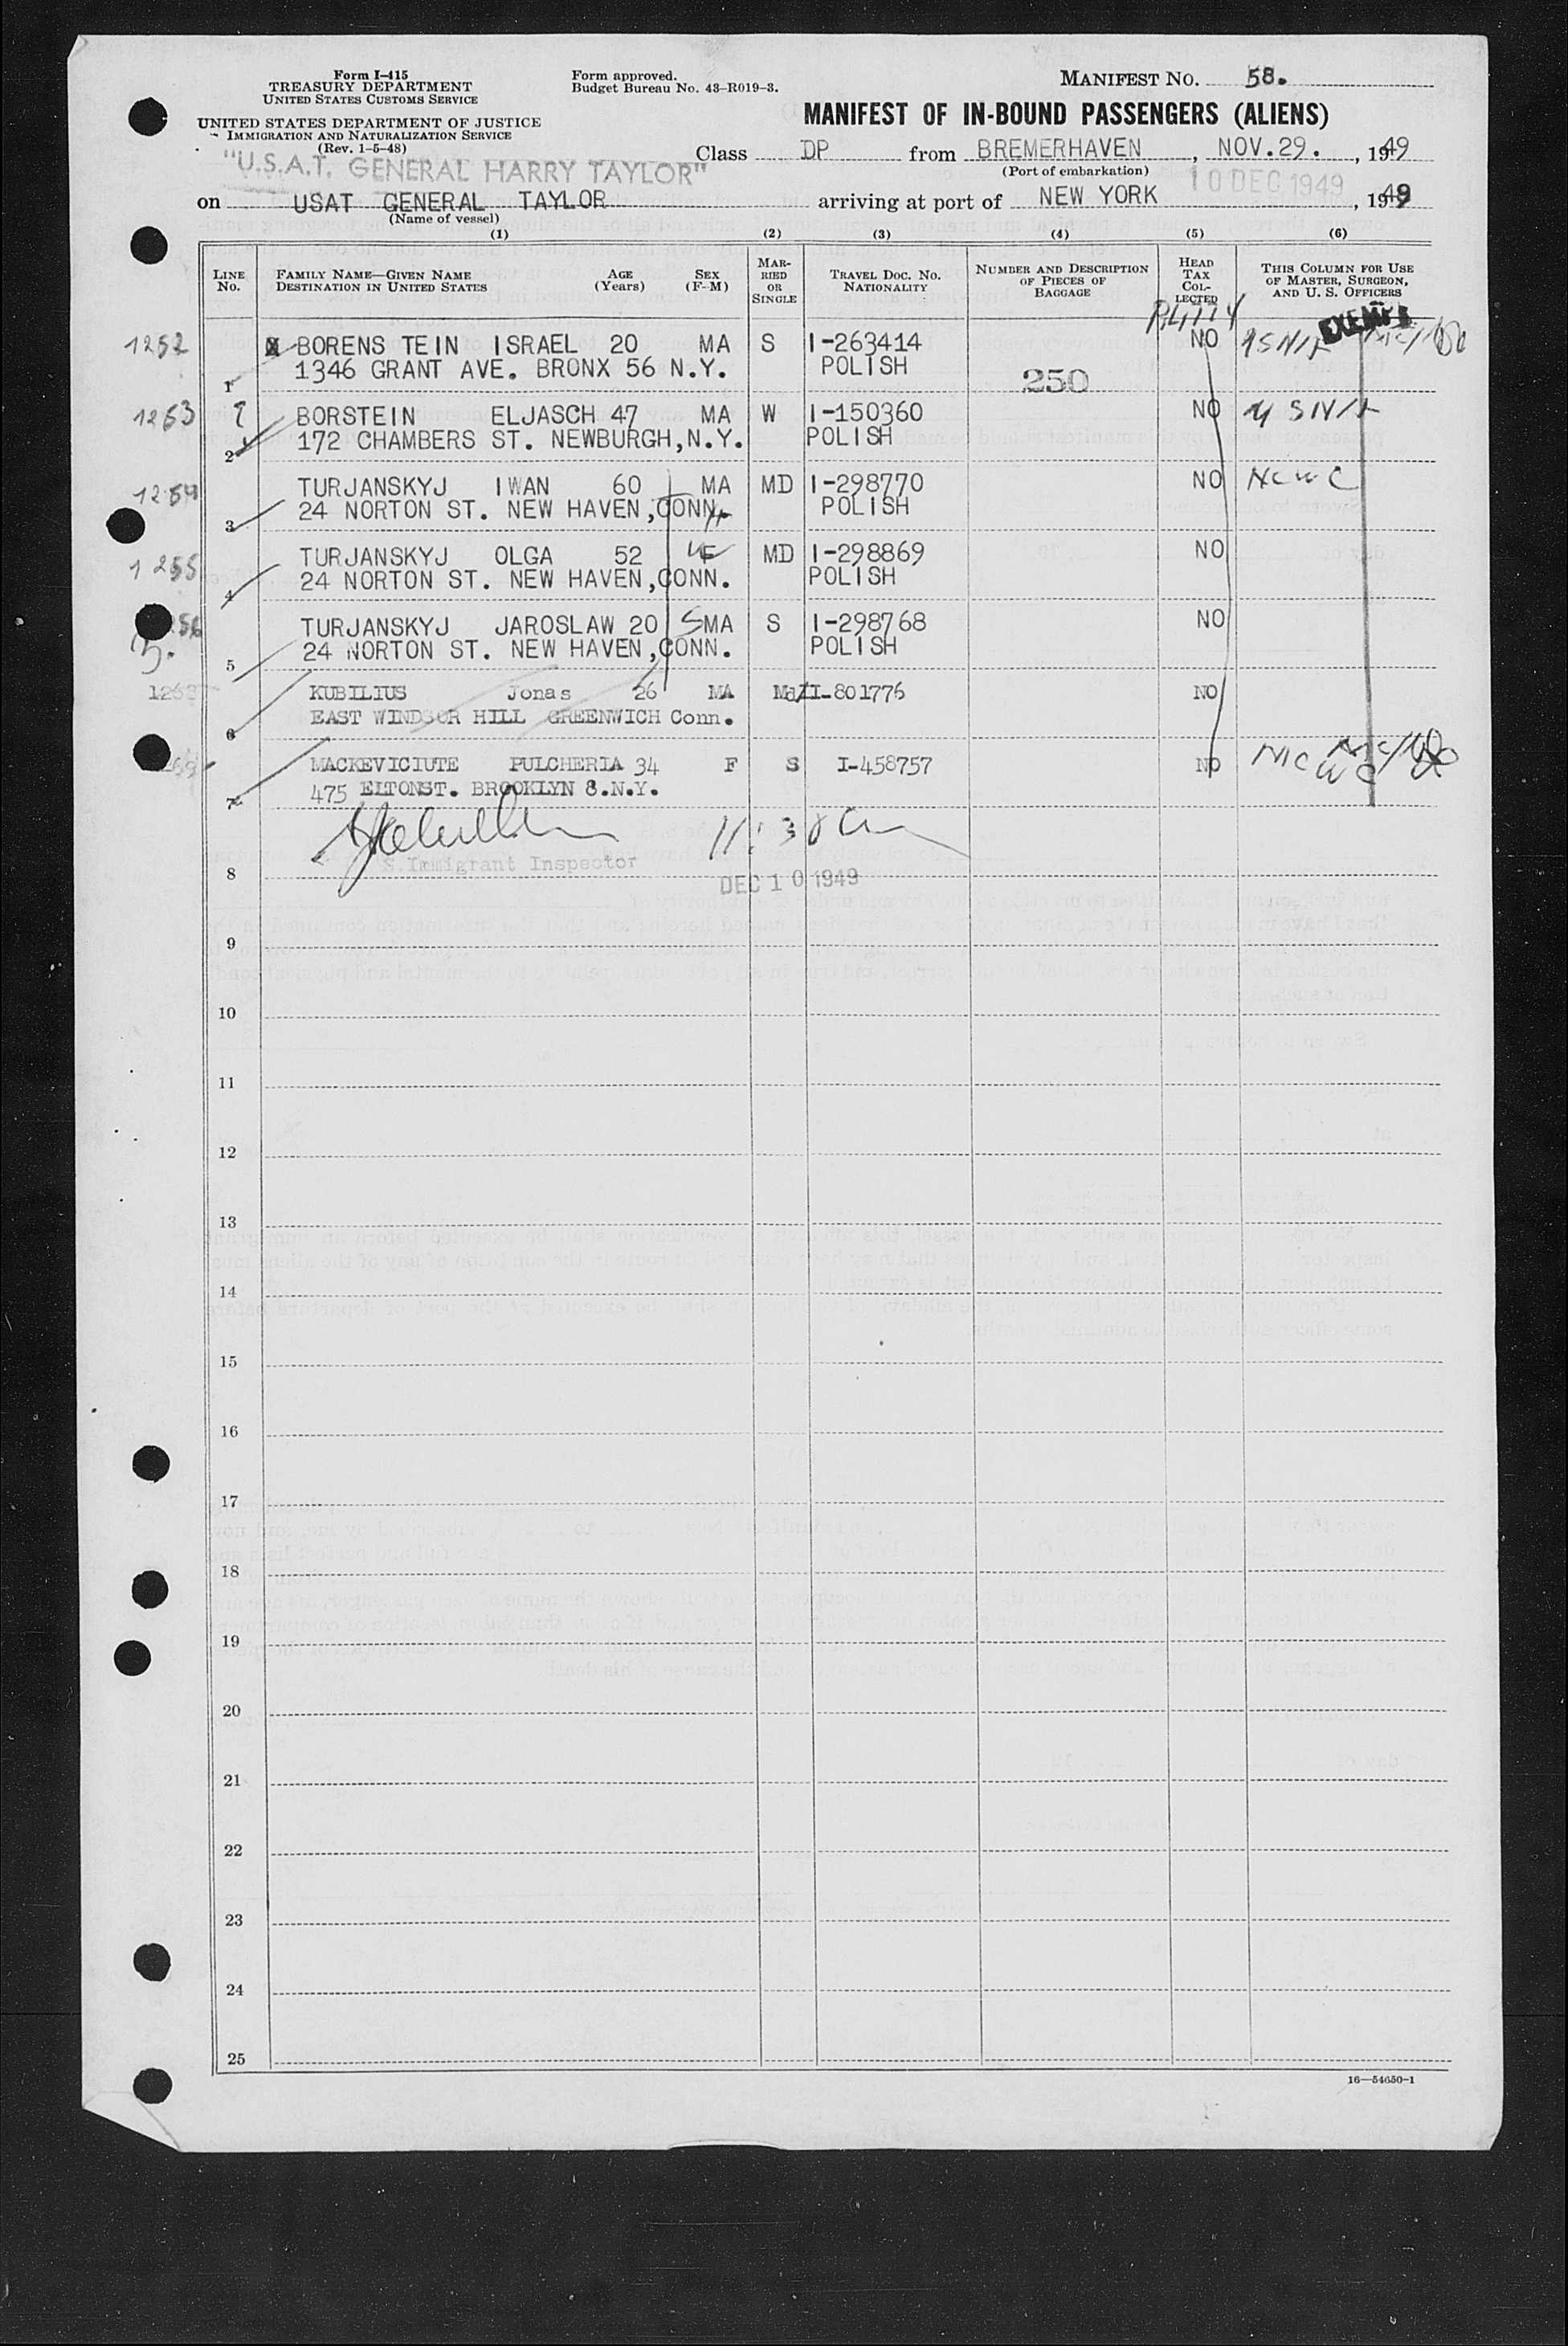 Form I-415
TREASURY DEPARTMENT
UNITED STATES CUSTOMS SERVICE
UNITED STATES DEPARTMENT OF JUSTICE
IMMIGRATION AND NATURALIZATION SERVICE
(Rev. 1-5-48)
Form approved.
Budget Bureau No. 43-R019-3.
MANIFEST NO. 58.
MANIFEST OF IN-BOUND PASSENGERS (ALIENS)
"U.S.A.T. GENERAL HARRY TAYLOR"
Class DP from BREMERHAVEN, NOV.29., 1949
(Port of embarkation)
10 DEC 1949
on USAT GENERAL TAYLOR arriving at port of NEW YORK, 1949
(Name of vessel)
(1) (2) (3) (4) (5) (6)
LINE No. FAMILY NAME—GIVEN NAME DESTINATION IN UNITED STATES AGE (Years) SEX (F-M) MARRIED OR SINGLE TRAVEL DOC. NO. NATIONALITY NUMBER AND DESCRIPTION OF PIECES OF BAGGAGE HEAD TAX COLLECTED THIS COLUMN FOR USE OF MASTER, SURGEON, AND U. S. OFFICERS
EXEMPT
1252 BORENS TEIN ISRAEL 20 MA S I-263414 NO
1 1346 GRANT AVE. BRONX 56 N.Y. POLISH 250
1253 BORSTEIN ELJASCH 47 MA W I-150360 NO
2 172 CHAMBERS ST. NEWBURGH,N.Y. POLISH
1254 TURJANSKYJ IWAN 60 MA MD I-298770 NO NCWC
3 24 NORTON ST. NEW HAVEN,CONN. POLISH
1255 TURJANSKYJ OLGA 52 F MD I-298869 NO
4 24 NORTON ST. NEW HAVEN,CONN. POLISH
TURJANSKYJ JAROSLAW 20 MA S I-298768 NO
5 24 NORTON ST. NEW HAVEN,CONN. POLISH
KUBILIUS Jonas 26 MA Md I-801776 NO
6 EAST WINDSOR HILL GREENWICH Conn.
MACKEVICIUTE PULCHERIA 34 F S I-458757 NO
7 475 ELTONST. BROOKLYN 8.N.Y.
11:30 am
S. Immigrant Inspector
8 DEC 10 1949
9
10
11
12
13
14
15
16
17
18
19
20
21
22
23
24
25
16—54650-1